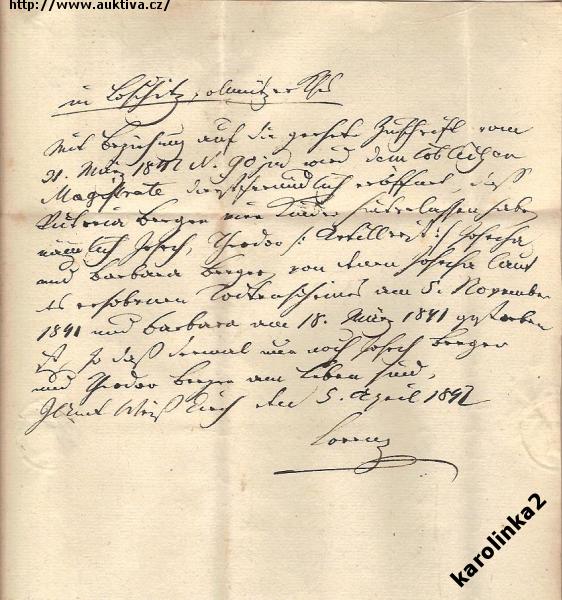 http://www.auktiva.cz/
in Loschitz, olmützer Kr
Mit Beziehung auf die geehrte Zuschrift vom
21. März 1842 N. 90 wird dem Löblichen
Magistrate dienstfreundlich eröffnet, daß
Viktoria Berger vier Kinder hinterlassen habe
nämlich Josef, Theodor /: Artillerist :/ Josefa
und Barbara Berger, von denen Josefa laut
erhobenen Todtenscheines am 5. November
1841 und Barbara am 18. März 1841 gestorben
ist, so daß dermal nur noch Josef Berger
und Theodor Berger am Leben sind.
den 5. April 1842
Lorenz
karolinka2